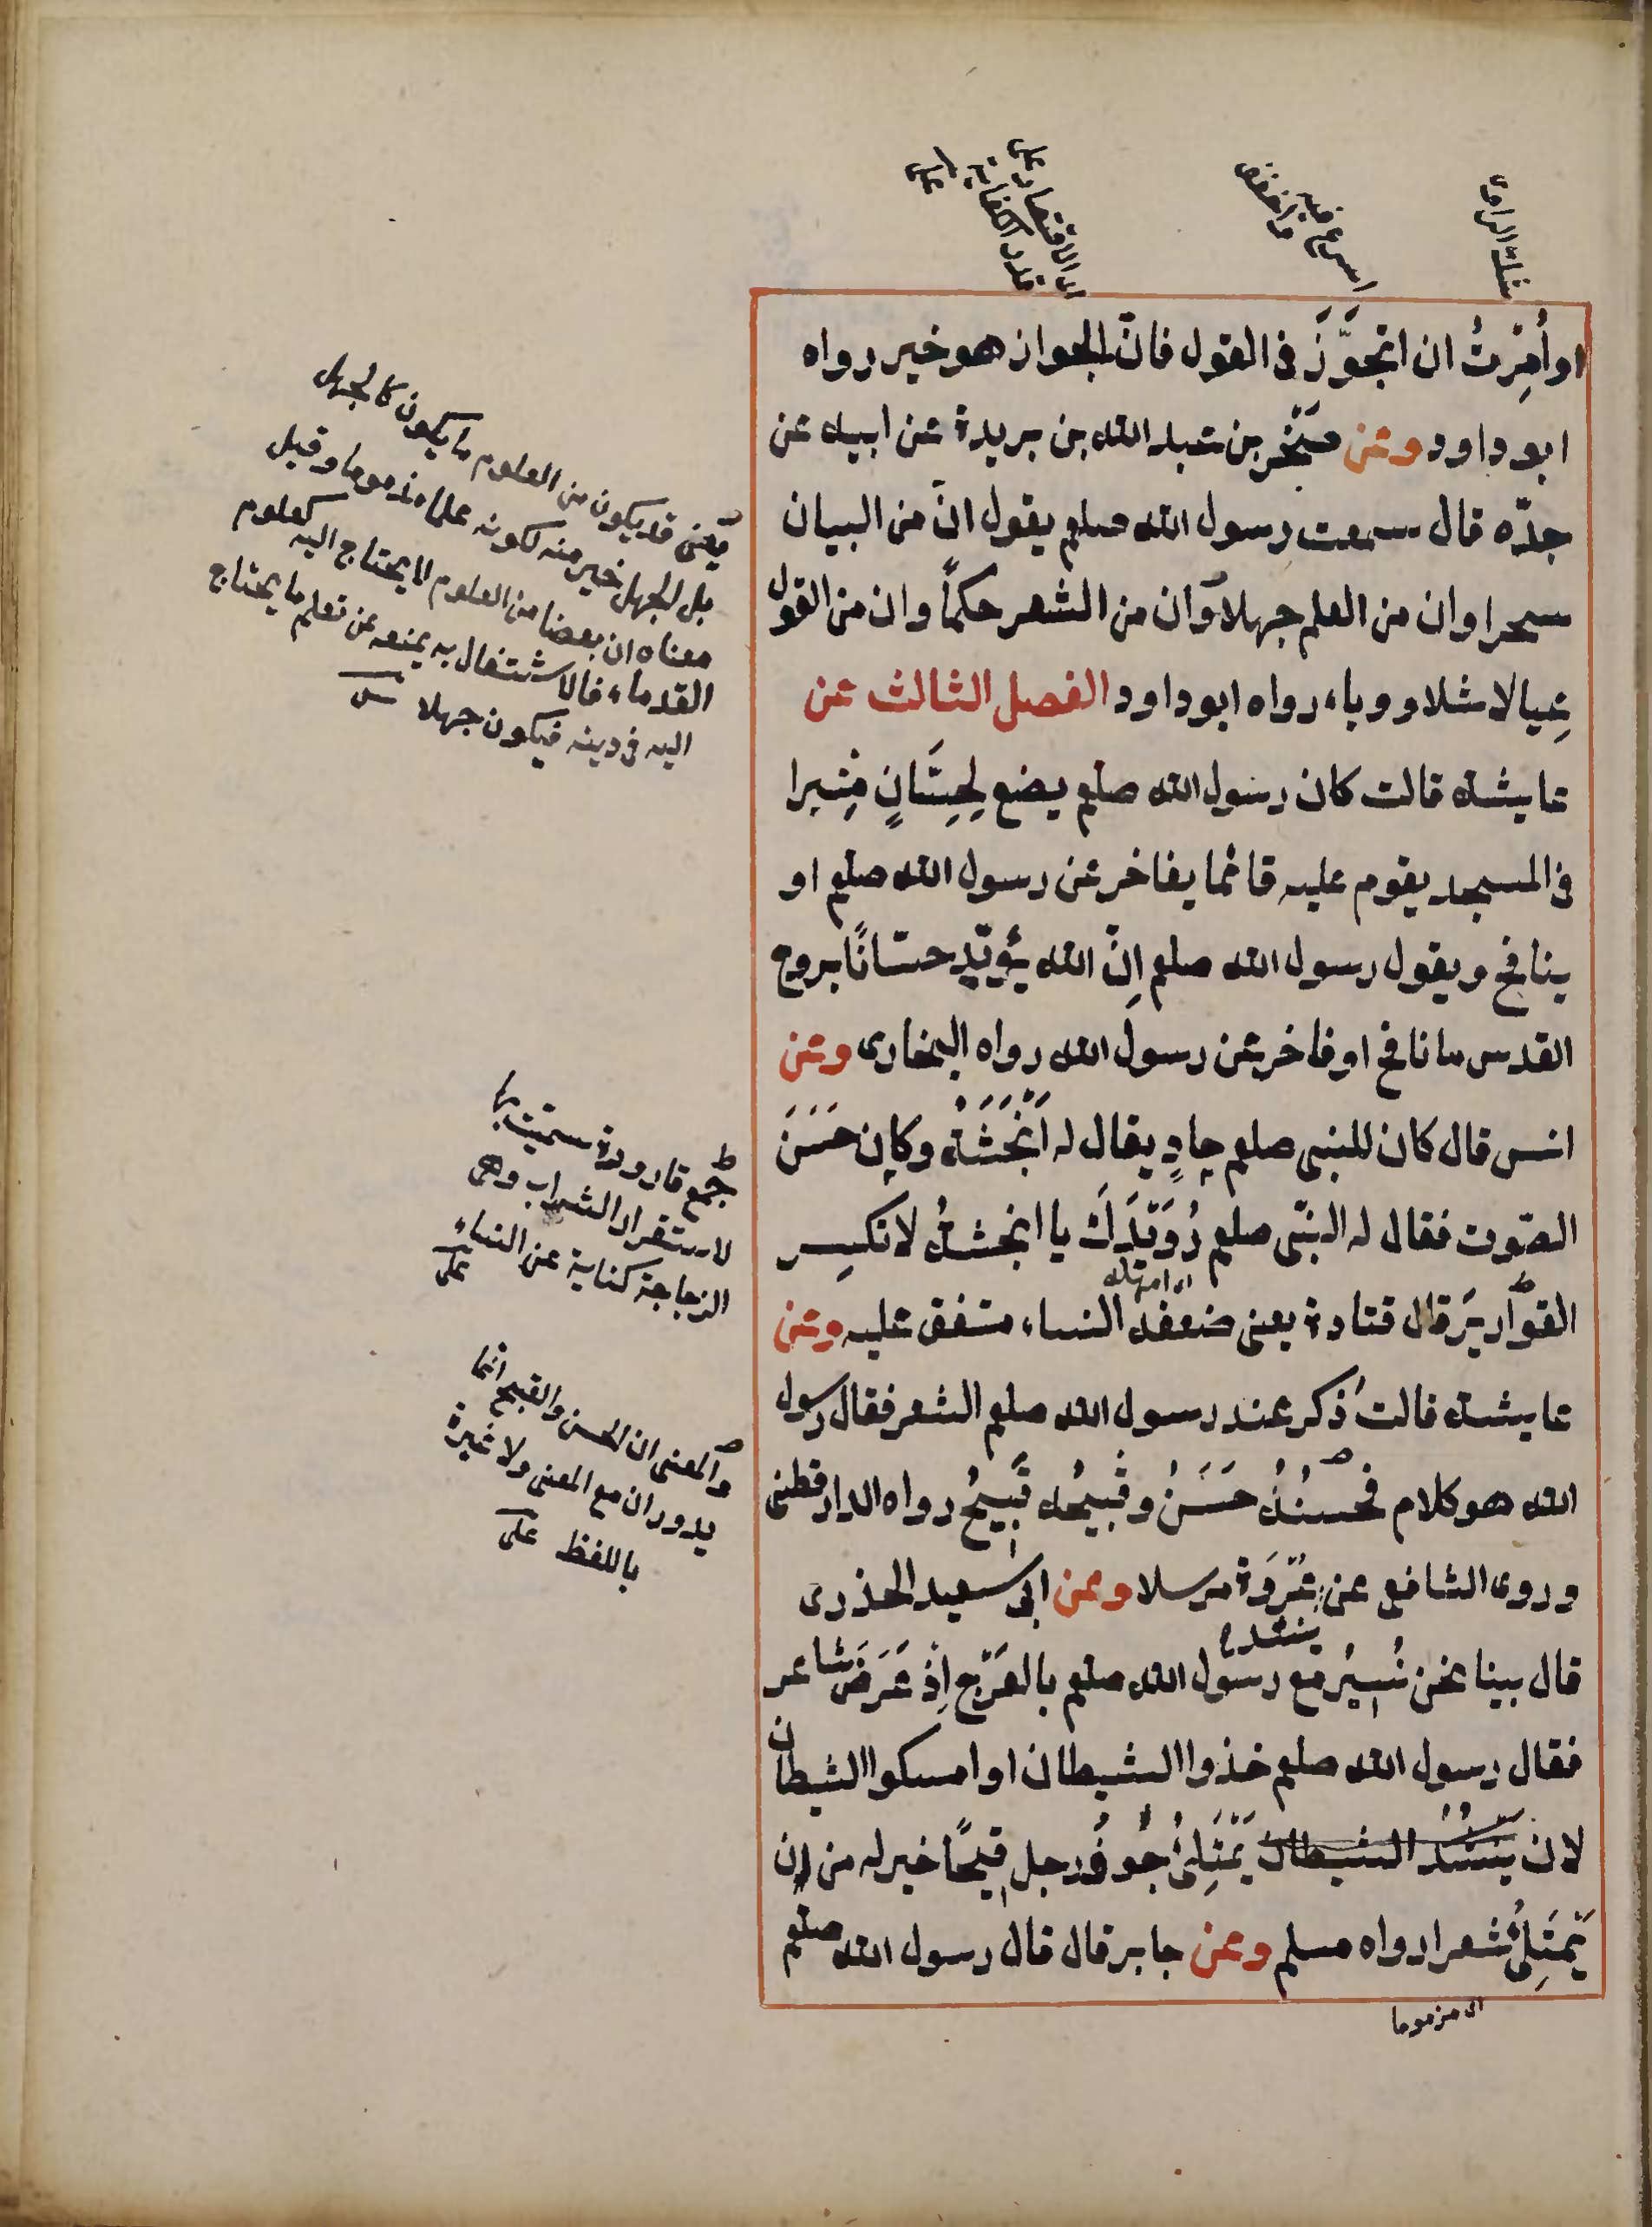 شك الراوى
اسرع فيه
واخفف
اى الاقتصار على
قدر الكفاية
على
او أُمِرْتُ ان اتجوَّزَ فى القول فانّ الجواز هو خير رواه
ابو داود وعن صَخْر بن عبد الله بن بريدة عن ابيه عن
جدّه قال سمعت رسول الله صلعم يقول انّ من البيان
سحرا وان من العلم جهلا وان من الشعر حكمًا وان من القول
عِيالا مثلا ووباء رواه ابو داود الفصل الثالث عن
عايشة قالت كان رسول الله صلعم يضع لِحسَّانٍ مِنْبرا
فى المسجد يقوم عليه قائما يفاخر عن رسول الله صلعم او
ينافح ويقول رسول الله صلعم اِنّ الله يُؤيّد حسّانًا بروح
القدس ما نافح او فاخر عن رسول الله رواه البخارى وعن
انس قال كان للنبى صلعم حادٍ يقال له اَنْجَشَةُ وكان حَسَنَ
الصّوت فقال له النبّى صلعم رُوَيْدَكَ يا انجشةُ لا تكسِر
اى امهله
القوَاريَر قال قتادة يعنى ضعفة النساء متفق عليه وعن
عايشة قالت ذُكر عند رسول الله صلعم الشعر فقال رسول
الله هو كلام فحسنُهُ حَسَنُ وقبيحُه قَبيحُ رواه الدار قطنى
وروى الشافعى عن عُرْوَة مرسلا وعن ابى سعيد الخدرى
قال بينا نحن نُسيرُ مع رسول الله صلعم بالعَرْج اِذْ عَرَضَ شاعر
ينشد
فقال رسول الله صلعم خذوا الشيطان او امسكوا الشيطان
لان يَنْشُدُ الشيطان يَمْتَلِىُٔ جُوفُ رجل قيحًا خير له من ان
يَمْتَلِىُٔ شعرا رواه مسلم وعن جابر قال قال رسول الله صلعم
اى مزموما
يعنى قد يكون من العلوم ما يكون كالجهل
بل الجهل خير منه لكونه علما مذموما وقيل
معناه ان بعضا من العلوم لا يحتاج اليه كعلوم
القدماء فالاشتغال به يمنعه عن تعلم ما يحتاج
اليه فى دينه فيكون جهلا
جمع قارورة سميت بها
لاستقرار الشراب وهى
الزجاجة كناية عن النساء
على
والمعنى ان الحسن والقبح انما
يدوران مع المعنى ولا عبرة
باللفظ على